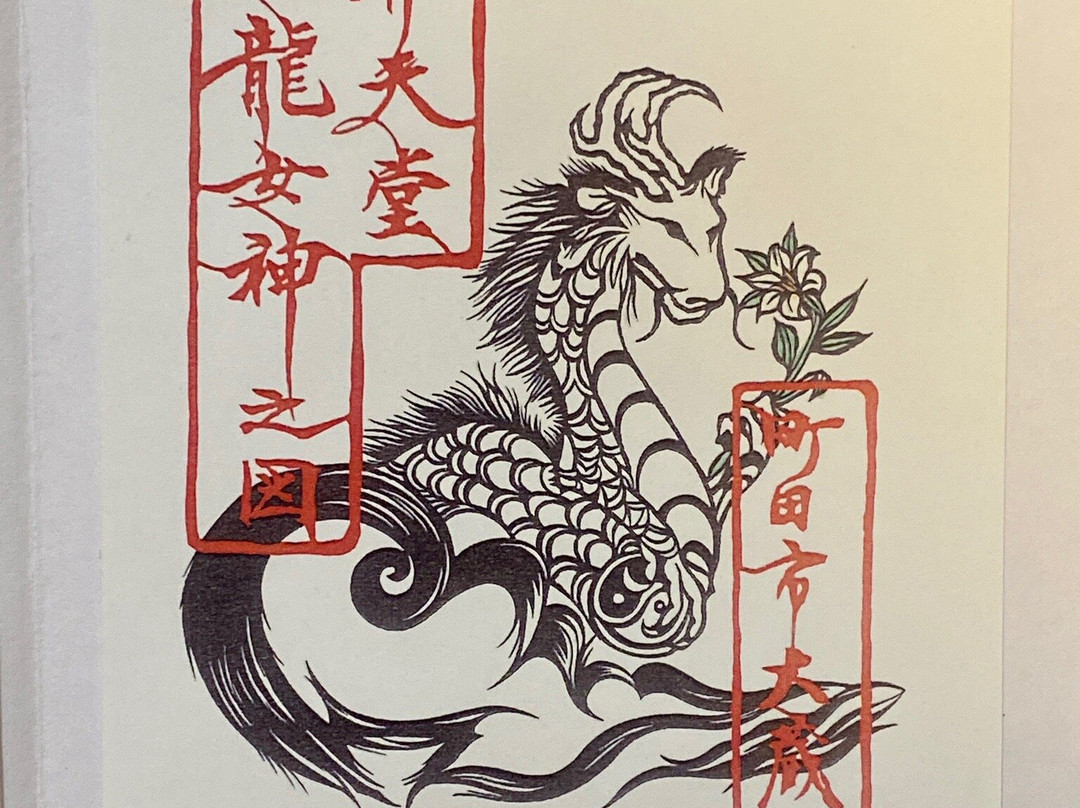 夫堂
龍女神之図
町田市大蔵